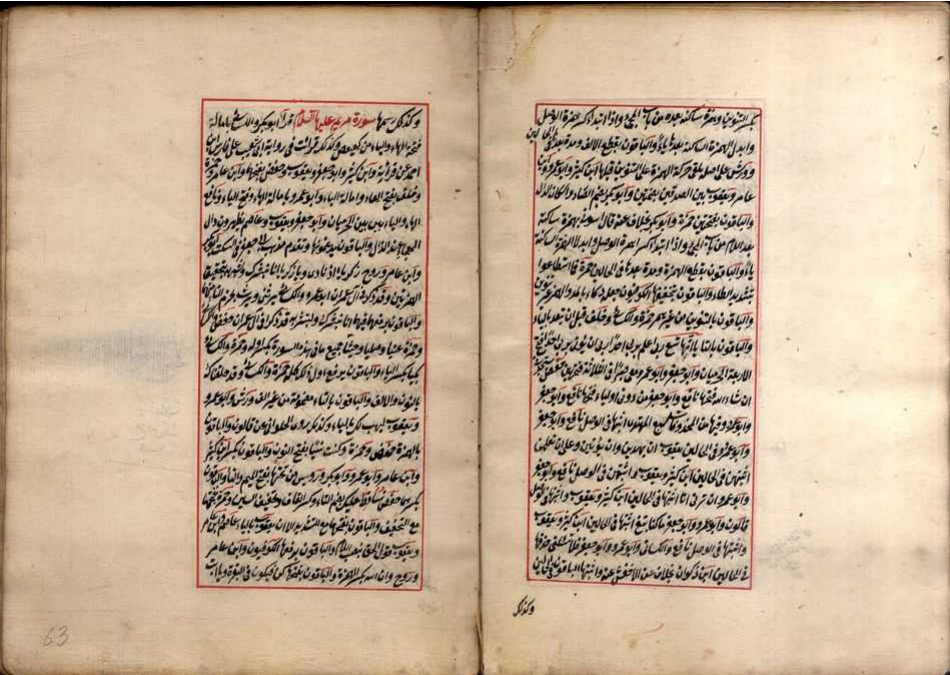 بكسر التنوين وهمزة ساكنة بعده من باب المجيء واذا ابتدا كسر همزة الوصل
وابدل الهمزة الساكنة بعدها ياء والباقون بقطع الالف ومدة بعدها في الحالين
وورش على اصله يلقي حركة الهمزة على التنوين قبلها ابن كثير وابو عمرو وابن
عامر ويعقوب بين الصدفين بضمتين وابو بكر بضم الصاد واسكان الدال
والباقون بفتحتين حمزة وابو بكر بخلاف عنه قال اتوني بهمزة ساكنة
بعد اللام من باب المجيء واذا ابتدا كسر همزة الوصل وابدلا الهمزة الساكنة
ياء والباقون بقطع الهمزة ومدة بعدها في الحالين حمزة فما اسطاعوا
بتشديد الطاء والباقون بتخفيفها الكوفيون جعله دكاء بالمد والهمز من غير تنوين
والباقون بالتنوين من غير همز حمزة والكسائي وخلف قبل ان ينفد بالياء
والباقون بالتاء ياآتها تسع ربي اعلم بربي احدا ربي ان يؤتين بربي احدا فتح
الاربعة الحرميان وابو جعفر وابو عمرو معي صبرا في الثلاثة فتحهن حفص ستجدني
ان شاء الله فتحها نافع وابو جعفر من دوني اولياء فتحها نافع وابو جعفر
وابو عمرو وفيها من المحذوفات سبع المهتد اثبتها في الوصل نافع وابو جعفر
وابو عمرو وفي الحالين يعقوب ان يهدين وان يؤتين وعلى ان تعلمن
اثبتهن في الحالين ابن كثير ويعقوب واثبتهن في الوصل نافع وابو جعفر
وابو عمرو ان ترن انا اثبتها في الحالين ابن كثير ويعقوب واثبتها في الوصل
قالون وابو عمرو وابو جعفر ما كنا نبغ اثبتها في الحالين ابن كثير ويعقوب
واثبتها في الوصل نافع والكسائي وابو عمرو وابو جعفر فلا تسئلني حذفها
في الحالين ابن ذكوان بخلاف عن الاخفش عنه واثبتها الباقون في الحالين
وكذلك
وكذلك رسمها سورة مريم عليها السلام قرأ ابو بكر والكسائي بامالة
فتحة الهاء والياء من كهيعص وكذلك قرات في رواية ابي شعيب على فارس ابن
احمد عن قراءته وابن كثير وابو جعفر ويعقوب وحفص بفتحهما وابن عامر وحمزة
وخلف بفتح الهاء وامالة الياء وابو عمرو بامالة الهاء وفتح الياء ونافع
الهاء والياء بين بين الحرميان وابو جعفر ويعقوب وعاصم يظهرون دال
الهجاء عند الذال والباقون يدغمونها وتقدم مذهب ابي جعفر في السكت
وابن عامر وروح زكرياء اذ نادى ويا زكرياء انا نبشرك وشبهه بتحقيق
الهمزتين وقد ذكر في آل عمران ابو عمرو والكسائي يرثني ويرث بجزم الثاء فيهما
والباقون برفعها فيهما انا نبشرك ولتبشر به قد ذكرا في آل عمران حفص والكسائي
وحمزة عتيا وصليا وجثيا جميع ما في هذه السورة بكسر اوله وحمزة والكسائي
بكيا بكسر الباء والباقون برفع اول ذلك كله حمزة والكسائي وقد خلقناك
بالنون والالف والباقون بالتاء مضمومة من غير الف ورش وابو عمرو
ويعقوب ليهب لك بالياء وكذلك روى الحلواني عن قالون والباقون
بالهمزة حفص وحمزة وكنت نسيا بفتح النون والباقون بكسرها ابن كثير
وابن عامر وابو عمرو وابو بكر ورويس من تحتها بفتح الميم والتاء والباقون
بكسرهما حفص تساقط عليك بضم التاء وكسر القاف وتخفيف السين وحمزة بفتحهما
مع التخفيف والباقون بفتحهما مع التشديد الا ان يعقوب بالياء عاصم وابن عامر
ويعقوب قول الحق بنصب اللام والباقون برفعها الكوفيون وابن عامر
وروح وان الله بكسر الهمزة والباقون بفتحها كن فيكون في البقرة ويا ابت
63